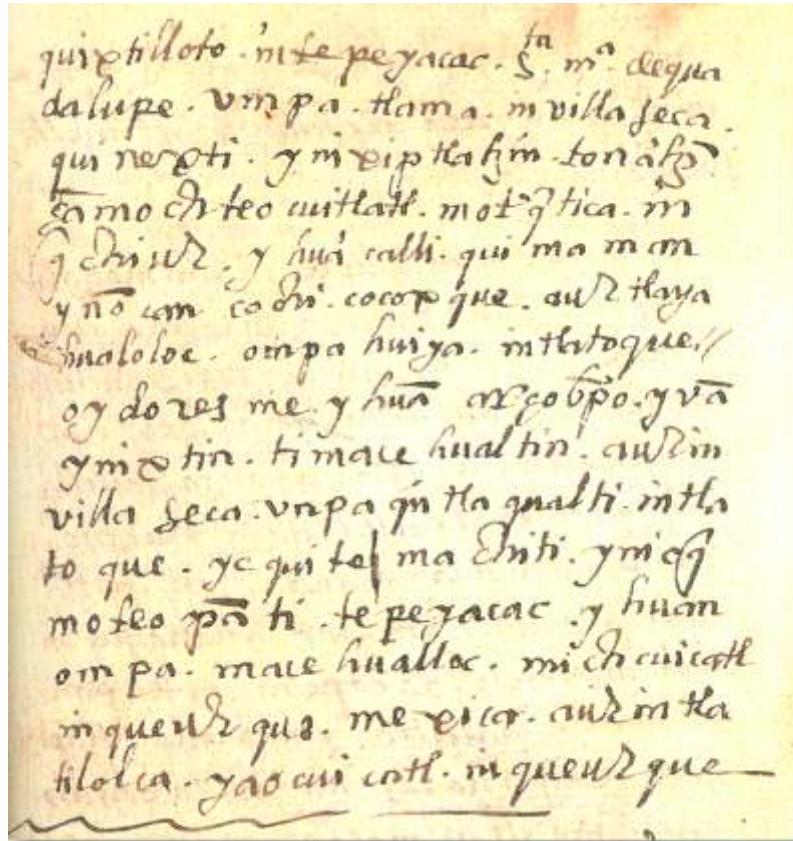 quixtilloto . in tepeyacac . Sta. ma. de gua
dalupe . vmpa . tlama . in villa seca .
qui nexti . ynixiptlatzin . tonātzī
çāmoch teocuitlatl . motq̄tica . in
q̄chiuh . yhuā calli . quimaman
y nōcan cochi . cocoxque . auh tlaya
hualoloc . ompa huiya . intlatoque //
oydoresme . yhuā arçobpō . yvā
ynixtin . timacehualtin . auh in
villa seca . vmpa q̄ntlaqualti . intla
toque . yc quitelmachiti . yniq̄
moteopāti . tepeyacac . yhuan
ompa . macehualloc . michcuicatl
inqueuhque . mexica . auh in tla
tilolca . yaocuicatl . inqueuhque